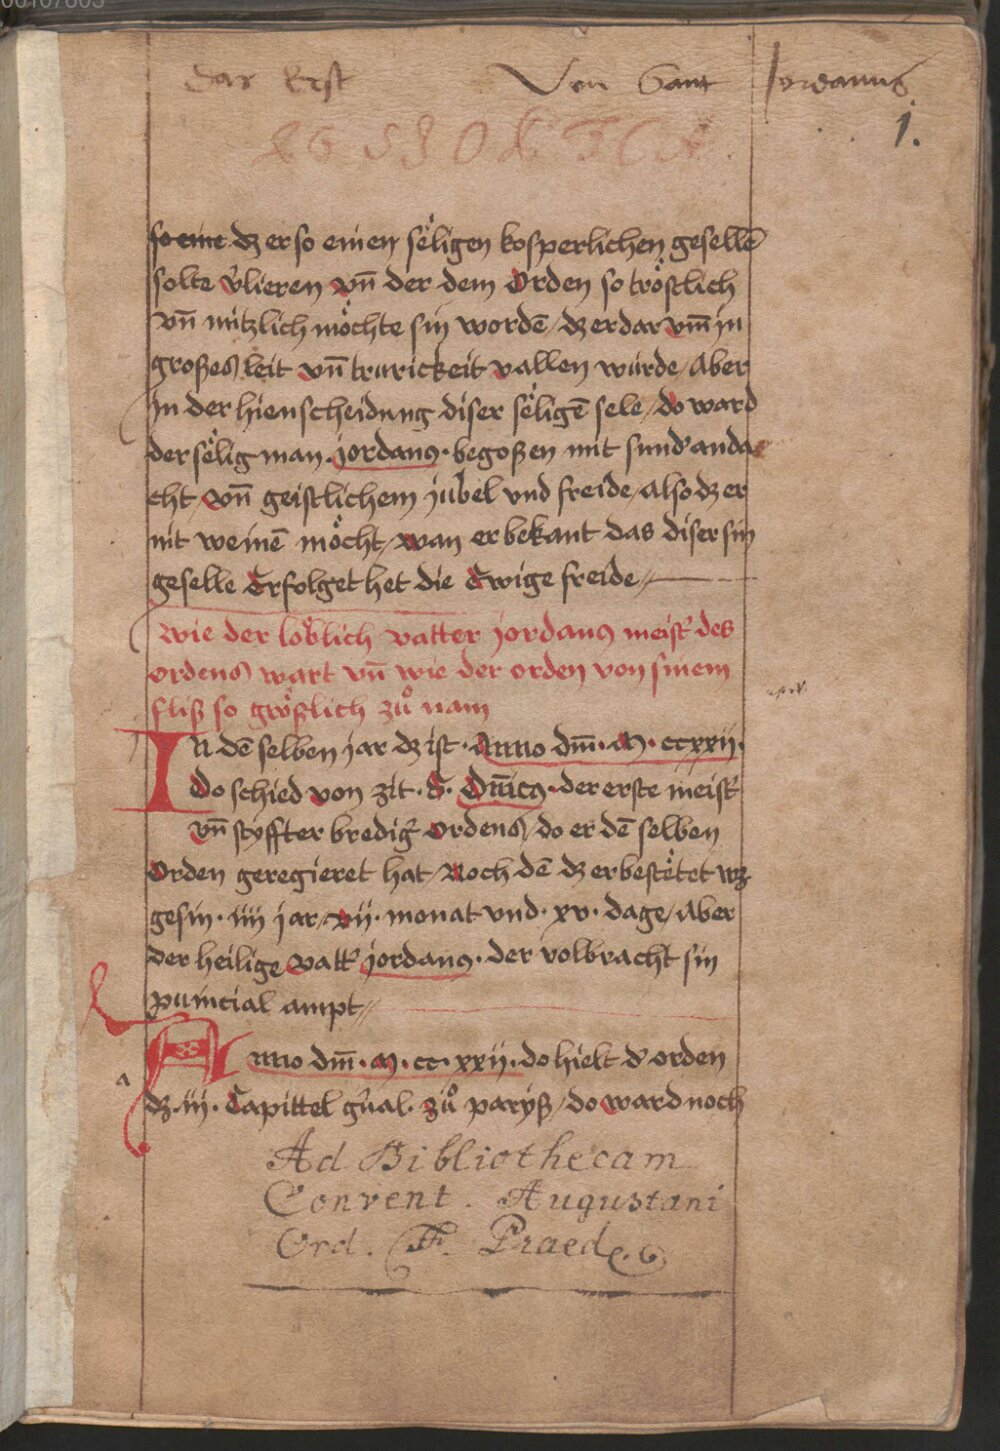 Das Erst Von Sant Jordanus
1.
so eine dz er so einen sëligen kosperlichen gesellē
solte v̉lieren vn̄ der dem Orden so tröstlich
vn̄ nützlich möchte sin wordē / dz er dar vm̄ in
großes leit vn̄ trurickeit vallen würde / Aber
In der hienscheidung diser sëligē sele / do ward
der sëlig man · jordanꝯ · begoßen mit sund̉ anda
cht / vn̄ geistlichem jubel vnd freide / Also dz er
nit weinē möcht / wan er bekant das diser sin
geselle Erfolget het die Ewige freide //
Wie der loblich vatter jordanꝯ meist̉ des
ordens wart vn̄ wie der orden von sinem
fliß so größlich zů nam
In dē selben jar dz ist · Anno dm̄ · M · ccxxij ·
Do schied von zit · S · Dn̄icꝯ · der erste meist̉
vn̄ styffter bredig̉ Ordens / do er dē selben
Orden geregieret hat / Noch dē dz er bestëtet wz
gesin · iiij jar / vij · monat vnd · xv · dage / Aber
der heilige vatt̉ jordanꝯ · der volbracht sin
puincial ampt //
a
Anno dm̄ · M · cc · xxij · do hielt d̉ orden
dz · iij · Capittel g̉nal · zů paryß / do ward noch
Ad Bibliothecam
Convent. Augustani
Ord. FF. Praed.